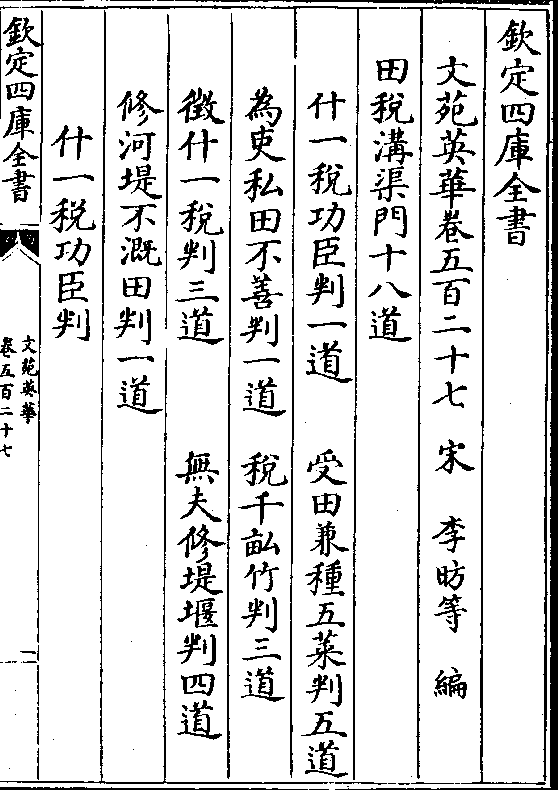 欽定四庫全書
文苑英華卷五百二十七　宋　李昉等　編
田稅溝渠門十八道
什一稅功臣判一道　受田兼種五菜判五道
為吏私田不善判一道　稅千畝竹判三道
徵什一稅判三道　無夫修堤堰判四道
修河堤不溉田判一道
什一稅功臣判
欽定四庫全書
文苑英華
卷五百二十七
一